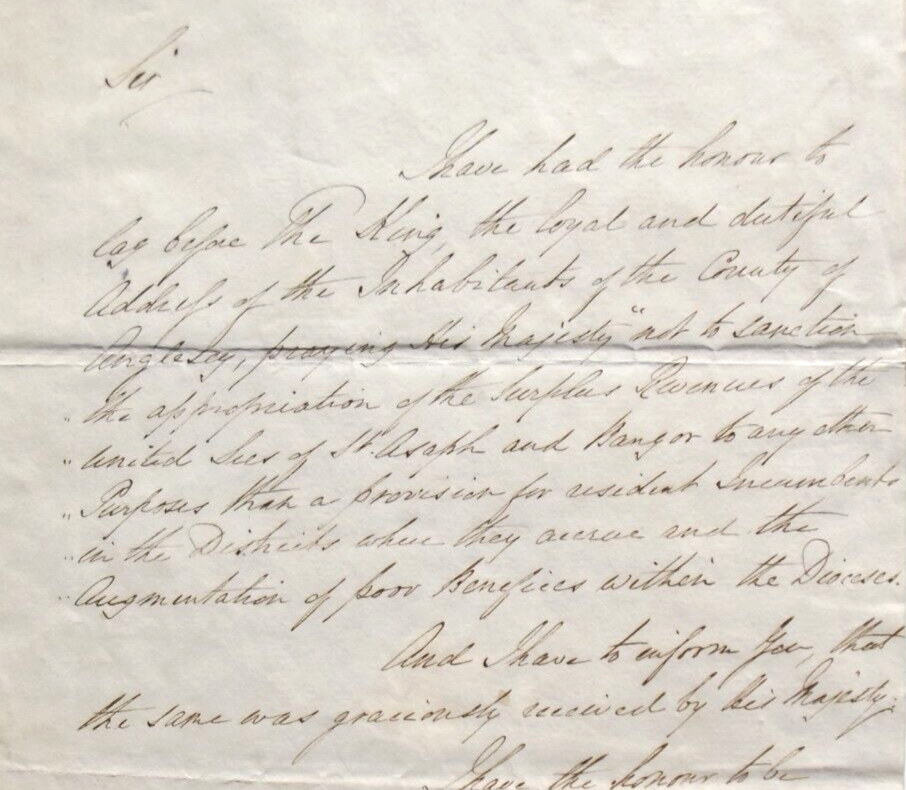 Sir
I have had the honour to
lay before The King, the loyal and dutiful
Address of the Inhabitants of the County of
Anglesey, praying His Majesty "not to sanction
" the appropriation of the Surplus Revenues of the
" United Sees of St. Asaph and Bangor to any other
" Purposes than a provision for resident Incumbents
" in the Districts where they accrue and the
" Augmentation of poor Benefices within the Dioceses.
And I have to inform You, that
the same was graciously received by His Majesty.
I have the honour to be